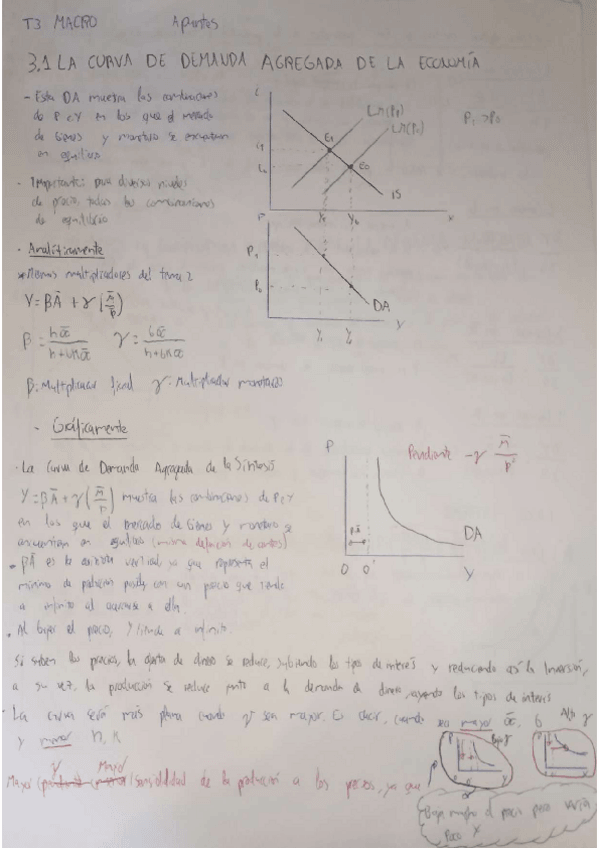 T3 MACRO Apuntes
3.1 LA CURVA DE DEMANDA AGREGADA DE LA ECONOMÍA
- Esta DA muestra las combinaciones
de P e Y en los que el mercado
de bienes y monetario se encuentran
en equilibrio
- Importante: para distintos niveles
de precio, todas las combinaciones
de equilibrio
i
LM(P1)
LM(P0)
P1 > P0
E1
E0
i1
i0
IS
Y1 Y0 Y
P
P1
P0
DA
Y1 Y0 Y
· Analíticamente
multiplicadores del tema 2
Y = βĀ + γ (M̄/P)
β = hᾱ / h + bkᾱ γ = bᾱ / h + bkᾱ
β: Multiplicador fiscal γ: Multiplicador monetario
- Gráficamente
P
Pendiente -γ M̄/P²
βĀ
DA
0 0' Y
· La Curva de Demanda Agregada de la Síntesis
Y = βĀ + γ (M̄/P) muestra las combinaciones de P e Y
en los que el mercado de bienes y monetario se
encuentran en equilibrio (misma definición de antes)
· βĀ es la asíntota vertical ya que representa el
mínimo de producción posible con un precio que tiende
a infinito al acercarse a ella.
· Al bajar el precio, Y tiende a infinito.
Si suben los precios, la oferta de dinero se reduce, subiendo los tipos de interés y reduciendo así la Inversión,
a su vez, la producción se reduce junto a la demanda de dinero, los tipos de interés
· La curva será más plana cuando γ sea mayor. Es decir, cuando sea mayor ᾱ, b
y menor h, k
Alto γ
Bajo γ
P
Mayor sensibilidad de la producción a los precios, ya que
Baja mucho el precio pero varía
poco Y